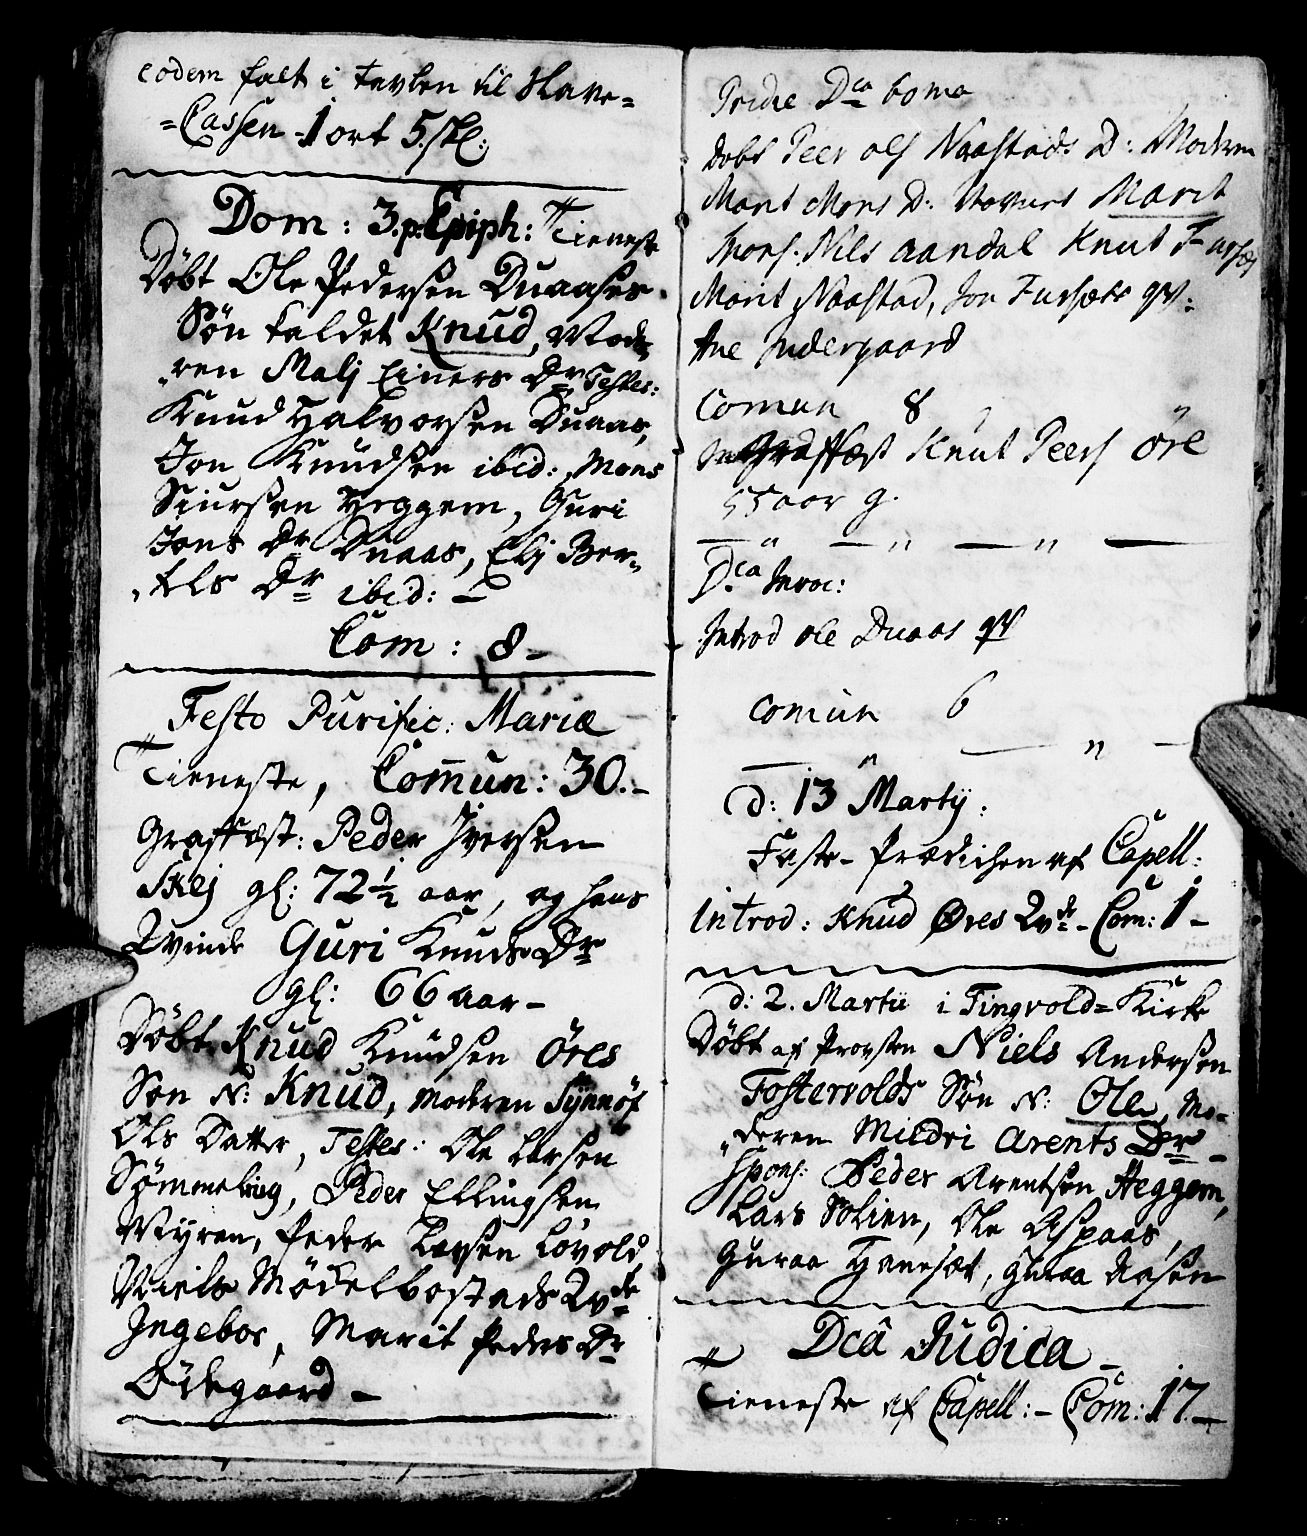 eodem falt i tavlen til Slave=
=Cassen 1 ort 5 sk:
Dom: 3. p. Epiph: Tieneste
Døbt Ole Pedersen Duaases
Søn kaldet Knud, Mode„
„ren Malj Einers Dr Testes:
Knud Halvorsen Duaas,
Jon Knudsen ibid: Mons
Siursen Heggem, Guri
Jons Dr Duaas, Elj Ber„
„tels Dr ibid: –
Com: 8 –
Festo Purific: Mariæ
Tieneste, Comun: 30. –
Graffæst: Peder Iversen
Skej gl: 72½ aar, og hans
Qvinde Guri Knuds Dr
gl: 66 aar –
Døbt Knud Knudsen Öres
Søn N: Knud, moderen Synnöf
Ols Datter, Testes: Ole Larsen
Sømmeliug, Peder Ellingsen
Myren, Peder Larsen Løvold
Niels Mødelbostads Qvde
Ingebor, Marit Peders Dr
Ödegaard –
Pridie Dca
dobt Peer Ols Naastads D: Modren
Marit Mons D: Marit
Nils aandal Knut Furset
Marit Naastad, Jon Fursæts qv:
Ane Indergaard
Comun 8
Graffæst Knut Peers öre
55 aar g.
Dca Invoc:
Introd ole Duaas qv
comun 6
d: 13 Martij:
Faste-Prædichen af Capell:
Introd: Knud Øres Qvde – Com: 1 –
d: 2. Martii i Tingvold=Kirke
Døbt af Provsten Niels Andersen
Fostervolds Søn N: Ole, Mo-
„deren Mildri Arents Dr –
Spons: Peder Arentsen Heggem,
Lars Solien, Ole Aspaas,
Guraa Hanesæt, Guraa Aasen
Dca Judica –
Tieneste af Capell: – Com: 17 –